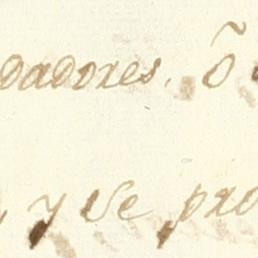 dadores. õ
, y se pro